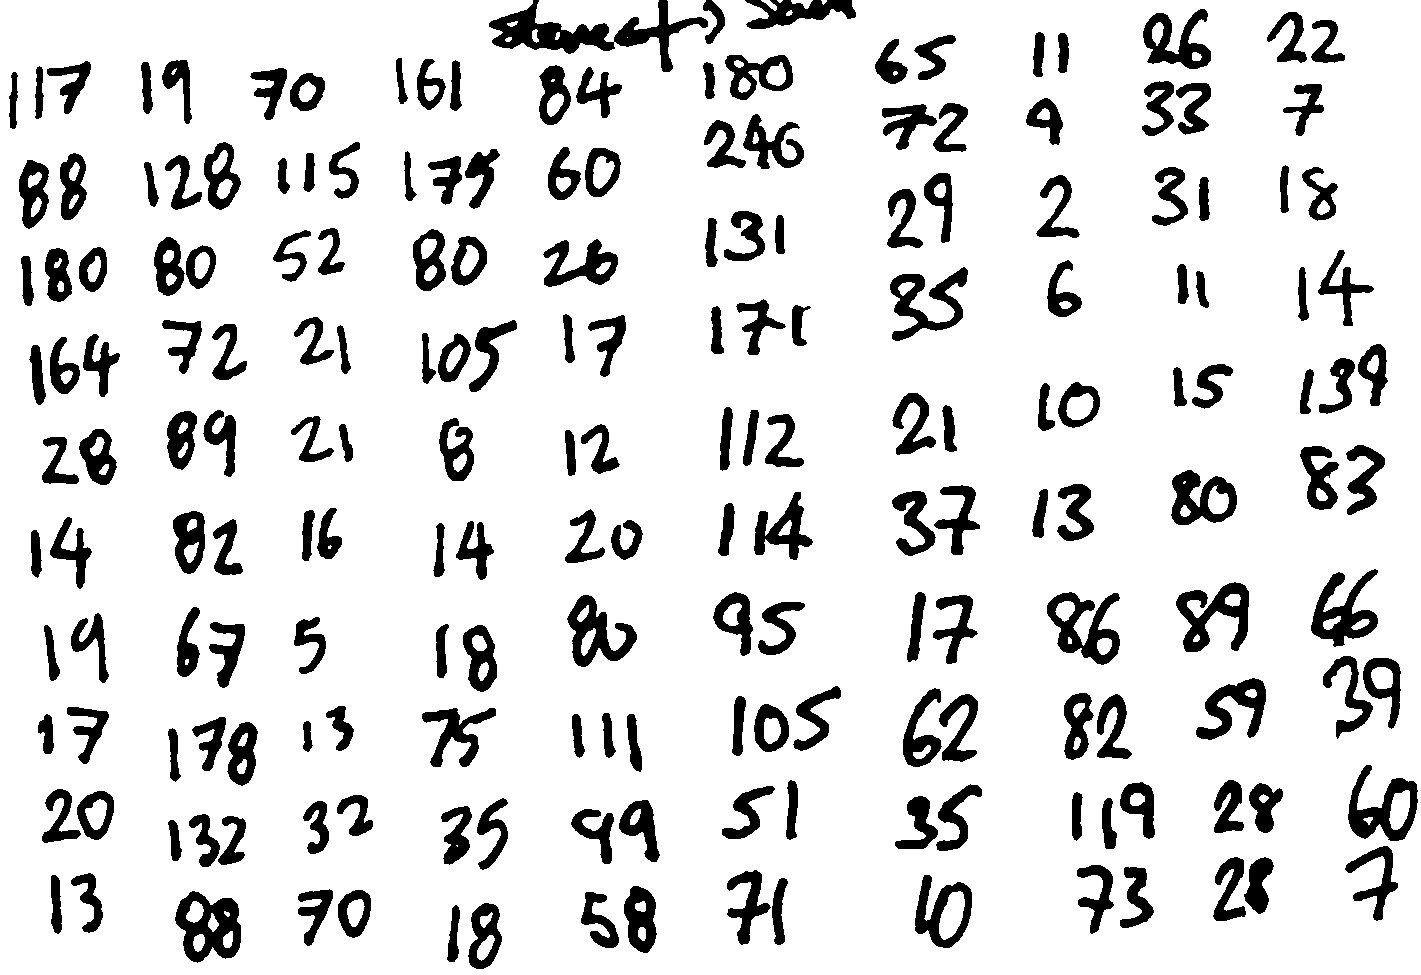 117 19 70 161 84 180 65 11 26 22
88 128 115 175 60 246 72 9 33 7
180 80 52 80 26 131 29 2 31 18
164 72 21 105 17 171 35 6 11 14
28 89 21 8 12 112 21 10 15 139
14 82 16 14 20 114 37 13 80 83
19 67 5 18 80 95 17 86 89 66
17 178 13 75 111 105 62 82 59 39
20 132 32 35 99 51 35 119 28 60
13 88 70 18 58 71 10 73 28 7